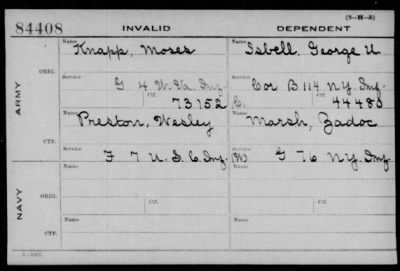 (3-H-5)
84408 INVALID DEPENDENT
Name Name
Knapp, Moses Isbell, George U
ORIG. Service Service
G 4 W. Va. Inf. Cor B 114 N.Y. Inf.
Ctf. Ctf.
73152 C, 44480
ARMY
Name Name
Preston, Wesley Marsh, Zadoc
CTF. Service Service
F 7 U. S. C. Inf. (W) G 76 N.Y. Inf.
Name Name
ORIG. Service Ctf. Service Ctf.
NAVY
Name Name
CTF. Service Service